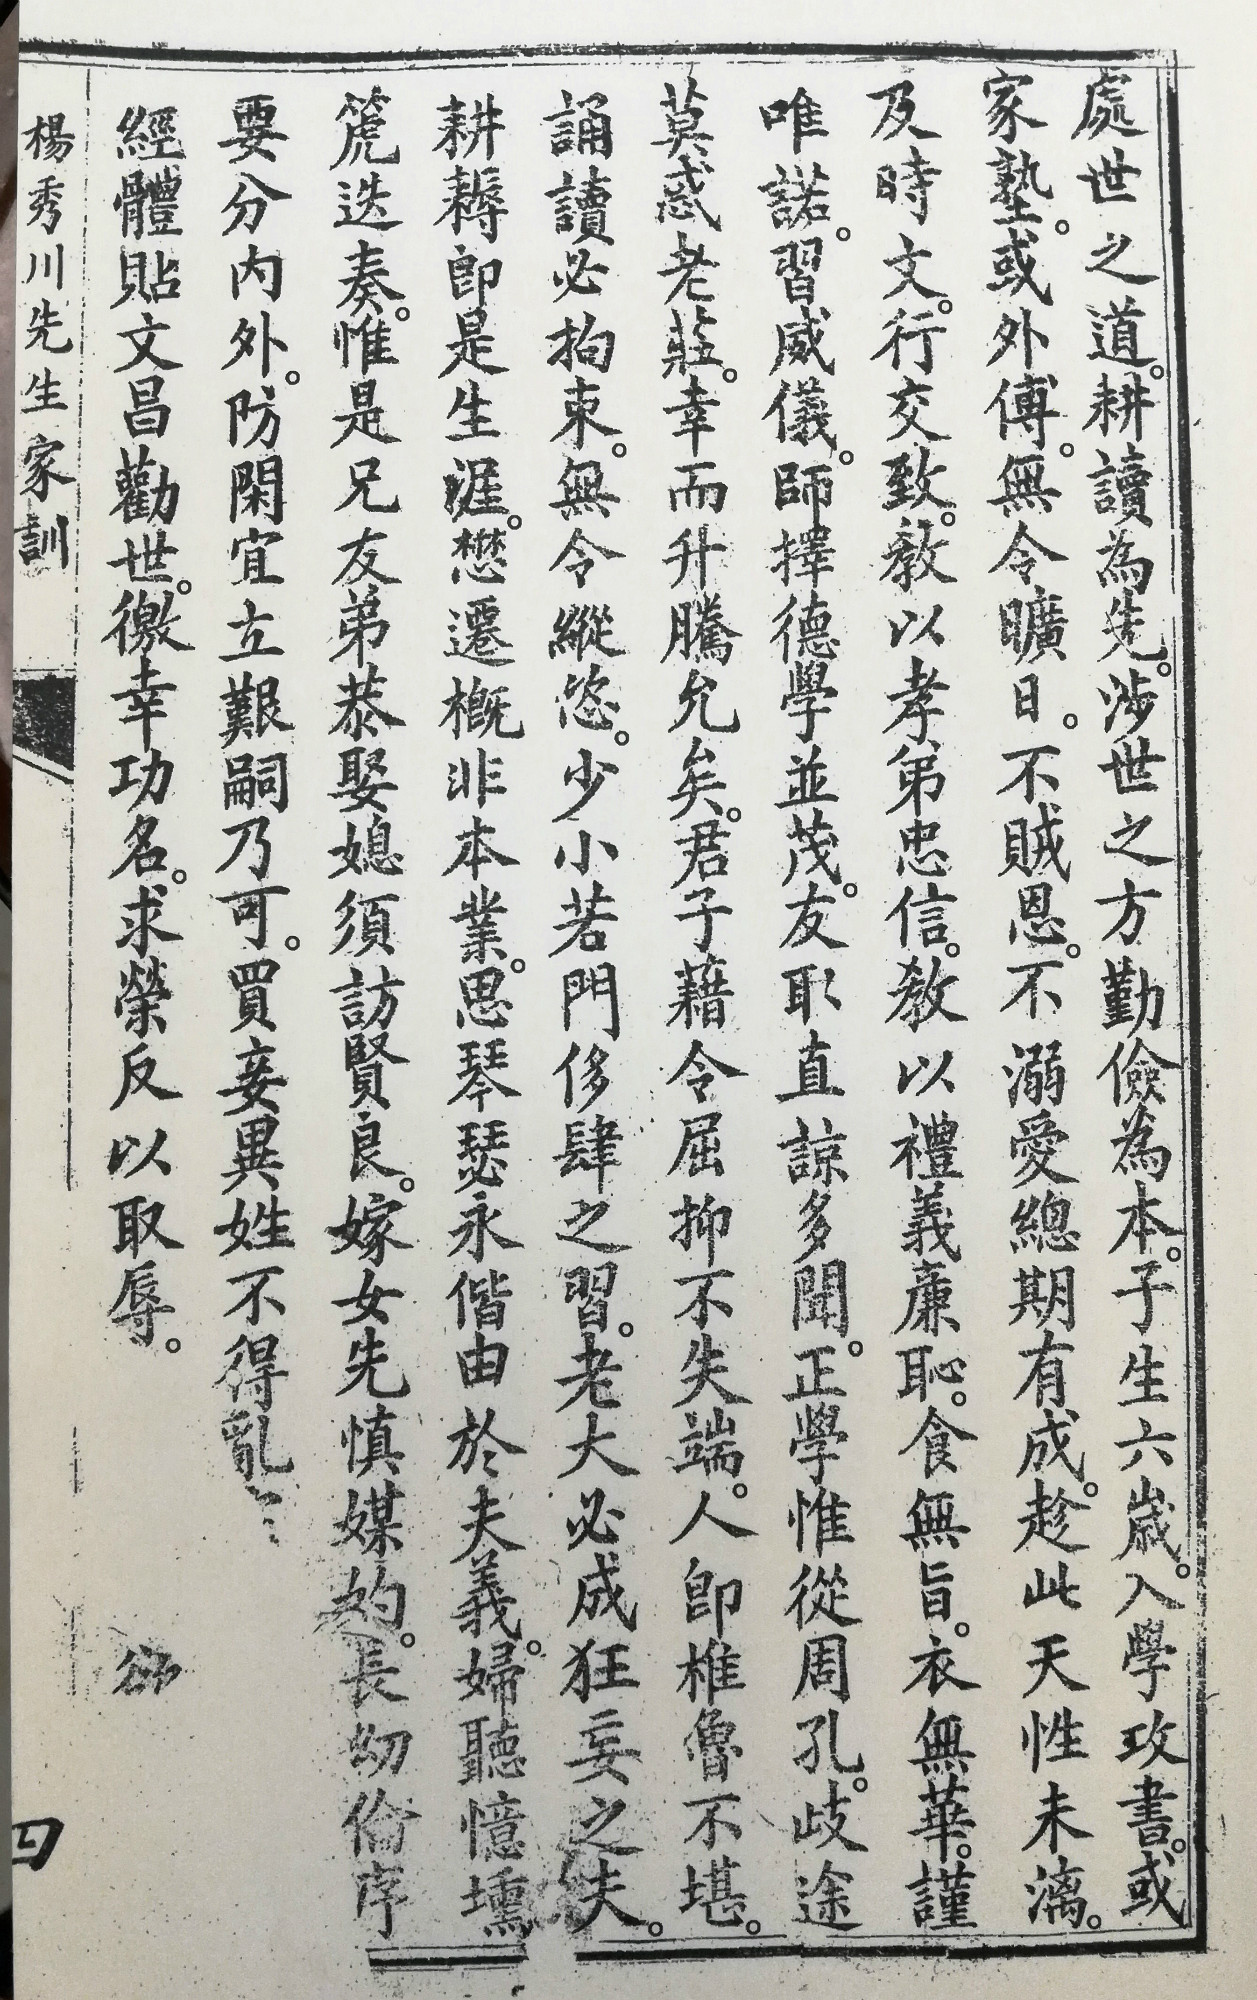 處世之道。耕讀為先。涉世之方勤儉為本。子生六歲。入學攻書。或
家塾。或外傅。無令曠日。不賊恩。不溺愛總期有成。趁此天性未漓。
及時文。行交致。教以孝弟忠信。教以禮義廉恥。食無旨。衣無華。謹
唯諾。習威儀。師擇德學並茂。友取直諒多聞。正學惟從周孔。歧途
莫惑老莊。幸而升騰允矣。君子藉令屈抑不失端。人即椎魯不堪。
誦讀必拘束。無令縱恣。少小若門侈肆之習。老大必成狂妄之夫。
耕耨即是生涯。懋遷概非本業。思琴瑟永偕由於夫義。婦聽憶壎
篪迭奏。惟是兄友弟恭娶媳須訪賢良。嫁女先慎媒妁。長幼倫序
要分內外。防閑宜立艱嗣乃可。買妾異姓不得亂
經體貼文昌勸世。徼幸功名。求榮反以取辱。
楊秀川先生家訓
四